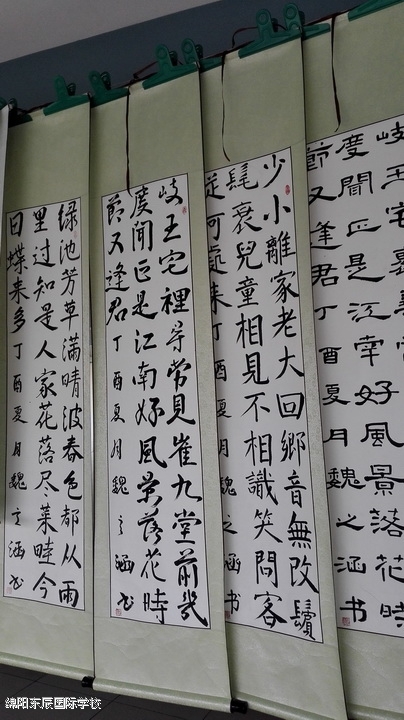 岐王宅裏尋常
度聞正是江南好風景落花時
節又逢君丁酉夏月魏之涵书
少小離家老大回鄉音無改鬢
髦衰兒童相見不相識笑問客
從何處来丁酉夏月魏之涵书
岐王宅裡尋常見崔九堂前幾
度聞正是江南好風景落花時
節又逢君丁酉夏月魏之涵书
绿池芳草滿晴波春色都从雨
里过知是人家花落尽菜畦今
日蝶来多丁酉夏月魏之涵书
绵阳东辰国际学校